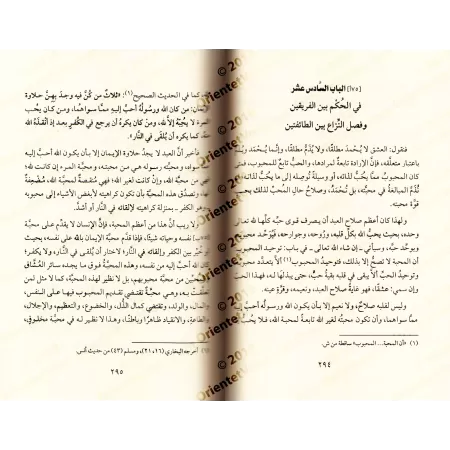 [١٧٥] الباب السَّادس عشر
في الحُكم بين الفريقين
وفصل النِّزاع بين الطائفتين
فنقول: العشق لا يُحمَد مطلقًا، ولا يُذمُّ مطلقًا، وإنَّما يُحمَد ويُذمُّ
باعتبار متعلَّقه، فإنَّ الإرادة تابعةٌ لمرادها، والحبَّ تابعٌ للمحبوب، فمتى
كان المحبوبُ ممَّا يُحَبُّ لذاته، أو وسيلةً تُوصله إلى ما يُحَبُّ لذاته
تُذَمَّ المبالغةُ في محبته، بل تُحمَدُ، وصلاحُ حال المُحبِّ لذلك بحسب
قوَّة محبته.
ولهذا كان أعظم صلاح العبد أن يصرف قوى حبِّه كلَّها لله تعالى
وحده، بحيث يحبُّ الله بكلِّ قلبه، وروحه، وجوارحه، فيُوَحِّد محبوبه
ويوحِّد حبَّه، وسيأتي ـ إن شاء الله تعالى ـ في باب: توحيد المحبوب
أن المحبة لا تصحُّ إلا بذلك، فتوحيد المحبوب(١) ألَّا يتعدَّد محبوبه
وتوحيدُ الحبِّ ألَّا يبقى في قلبه بقيةُ حُبٍّ، حتى يبذلها له، فهذا الحبُّ
وإن سمي: عشقًا، فهو غايةُ صلاح العبد، ونعيمه، وقرَّة عينه.
وليس لقلبه صلاحٌ، ولا نعيم إلا بأن يكون الله ورسوله أحبَّ إليه
ممَّا سواهما، وأن تكون محبَّته لغير الله تابعةً لمحبة الله، فلا يُحبُّ
(١) «أن المحبة... المحبوب» ساقطة من ش.
٢٩٤
كما في الحديث الصحيح(١): «ثلاثٌ من كُنَّ فيه وجدَ بِهِنَّ حلاوة
الإيمان: من كان الله ورسولُه أحبَّ إليه ممَّا سواهما، ومن كان يحب
المرءَ لا يُحِبُّهُ إلا لله، ومن كان يكره أن يرجع في الكفر بعد إذ أنقذه الله
منه كما يكره أن يُلقى في النَّار».
فأخبر أنَّ العبد لا يجدُ حلاوةَ الإيمان إلا بأن يكون الله أحبَّ إليه
ممَّا سواه، ومحبة رسوله هي من محبته، ومحبة المرء إن كانت لله؛
فهي من محبة الله، وإن كانت لغير الله؛ فهي مُنقصةٌ لمحبة الله، مُضعِفةٌ
لها، وتصدُق هذه المحبَّة بأن تكون كراهيته لأبغض الأشياء إلى محبوبه
وهو الكفر ـ بمنزلة كراهيته لإلقائه في النَّار أو أشدَّ.
ولا ريب أنَّ هذا من أعظم المحبة، فإنَّ الإنسان لا يقدِّم على محبة
نفسه وحياته شيئًا، فإذا قدَّم محبة الإيمان بالله على نفسه، بحيث
خُيِّر بين الكفر وإلقائه في النَّار؛ لاختار أن يُلقى في النَّار، ولا يكفر؛
الله أحبَّ إليه من نفسه، وهذه المحبَّةُ فوق ما يجده سائر العُشَّاق
من محبَّة محبوبهم، بل لا نظير لهذه المحبَّة، كما لا مثل لمن
به، وهي محبَّةٌ تقتضي تقديم المحبوب فيها على النفس،
والمال، والولد، وتقتضي كمال الذُّل، والخضوع، والتعظيم، والإجلال،
والطاعة، والانقياد ظاهرًا وباطنًا، وهذا لا نظير له في محبَّة مخلوقٍ،
(١) أخرجه البخاري (١٦، ٢١)، ومسلم (٤٣) من حديث أنس.
٢٩٥